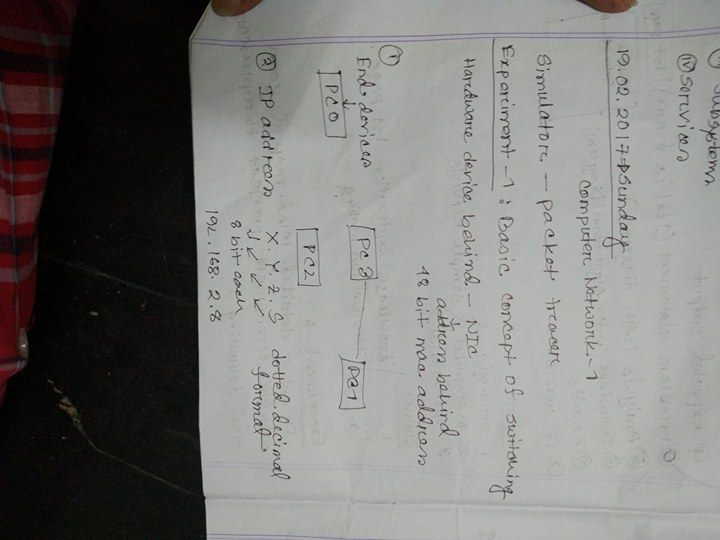 Subsystems
(iv) Services
19.02.2017 → Sunday
Computer Network-1
Simulator — packet tracer
Experiment-1: Basic concept of switching
Hardware device behind — NIC
address behind
48 bit mac address
① End devices
PC0
PC3
PC1
PC2
② IP address X.Y.Z.S dotted decimal format
8 bit each
192.168.2.8